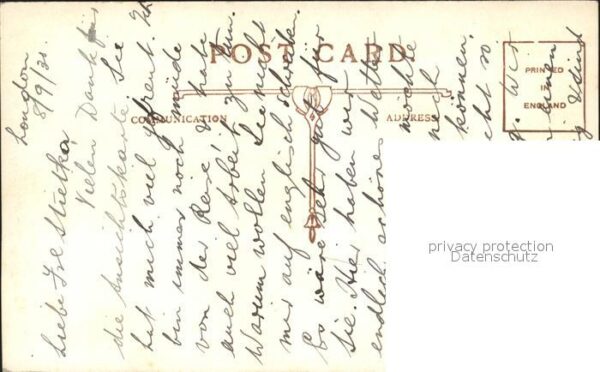 POST CARD.
COMMUNICATION
ADDRESS
PRINTED
IN
ENGLAND
London
8/9/31.
Liebe Frl
Vielen Dank für
die Ansichtskarte. Sie
hat mich viel gefreut. Ich
bin immer noch müde
von der Reise & habe
auch viel Arbeit zu tun.
Warum wollen Sie nicht
mir auf englisch schreiben.
Es wäre sehr gut für
Sie. Hier haben wir
endlich schönes Wetter
möchte
noch
können,
cht so
Wir
einen
privacy protection
Datenschutz